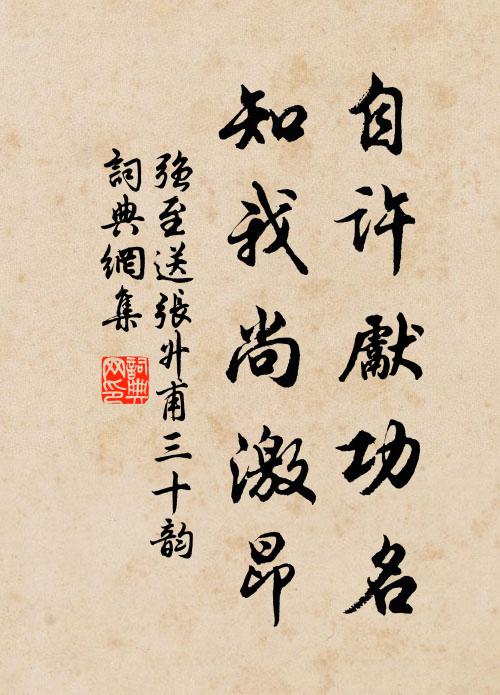 自许獻功名
知我尚激昂
強至送張升甫三十韵
詞典網集
詞典網印